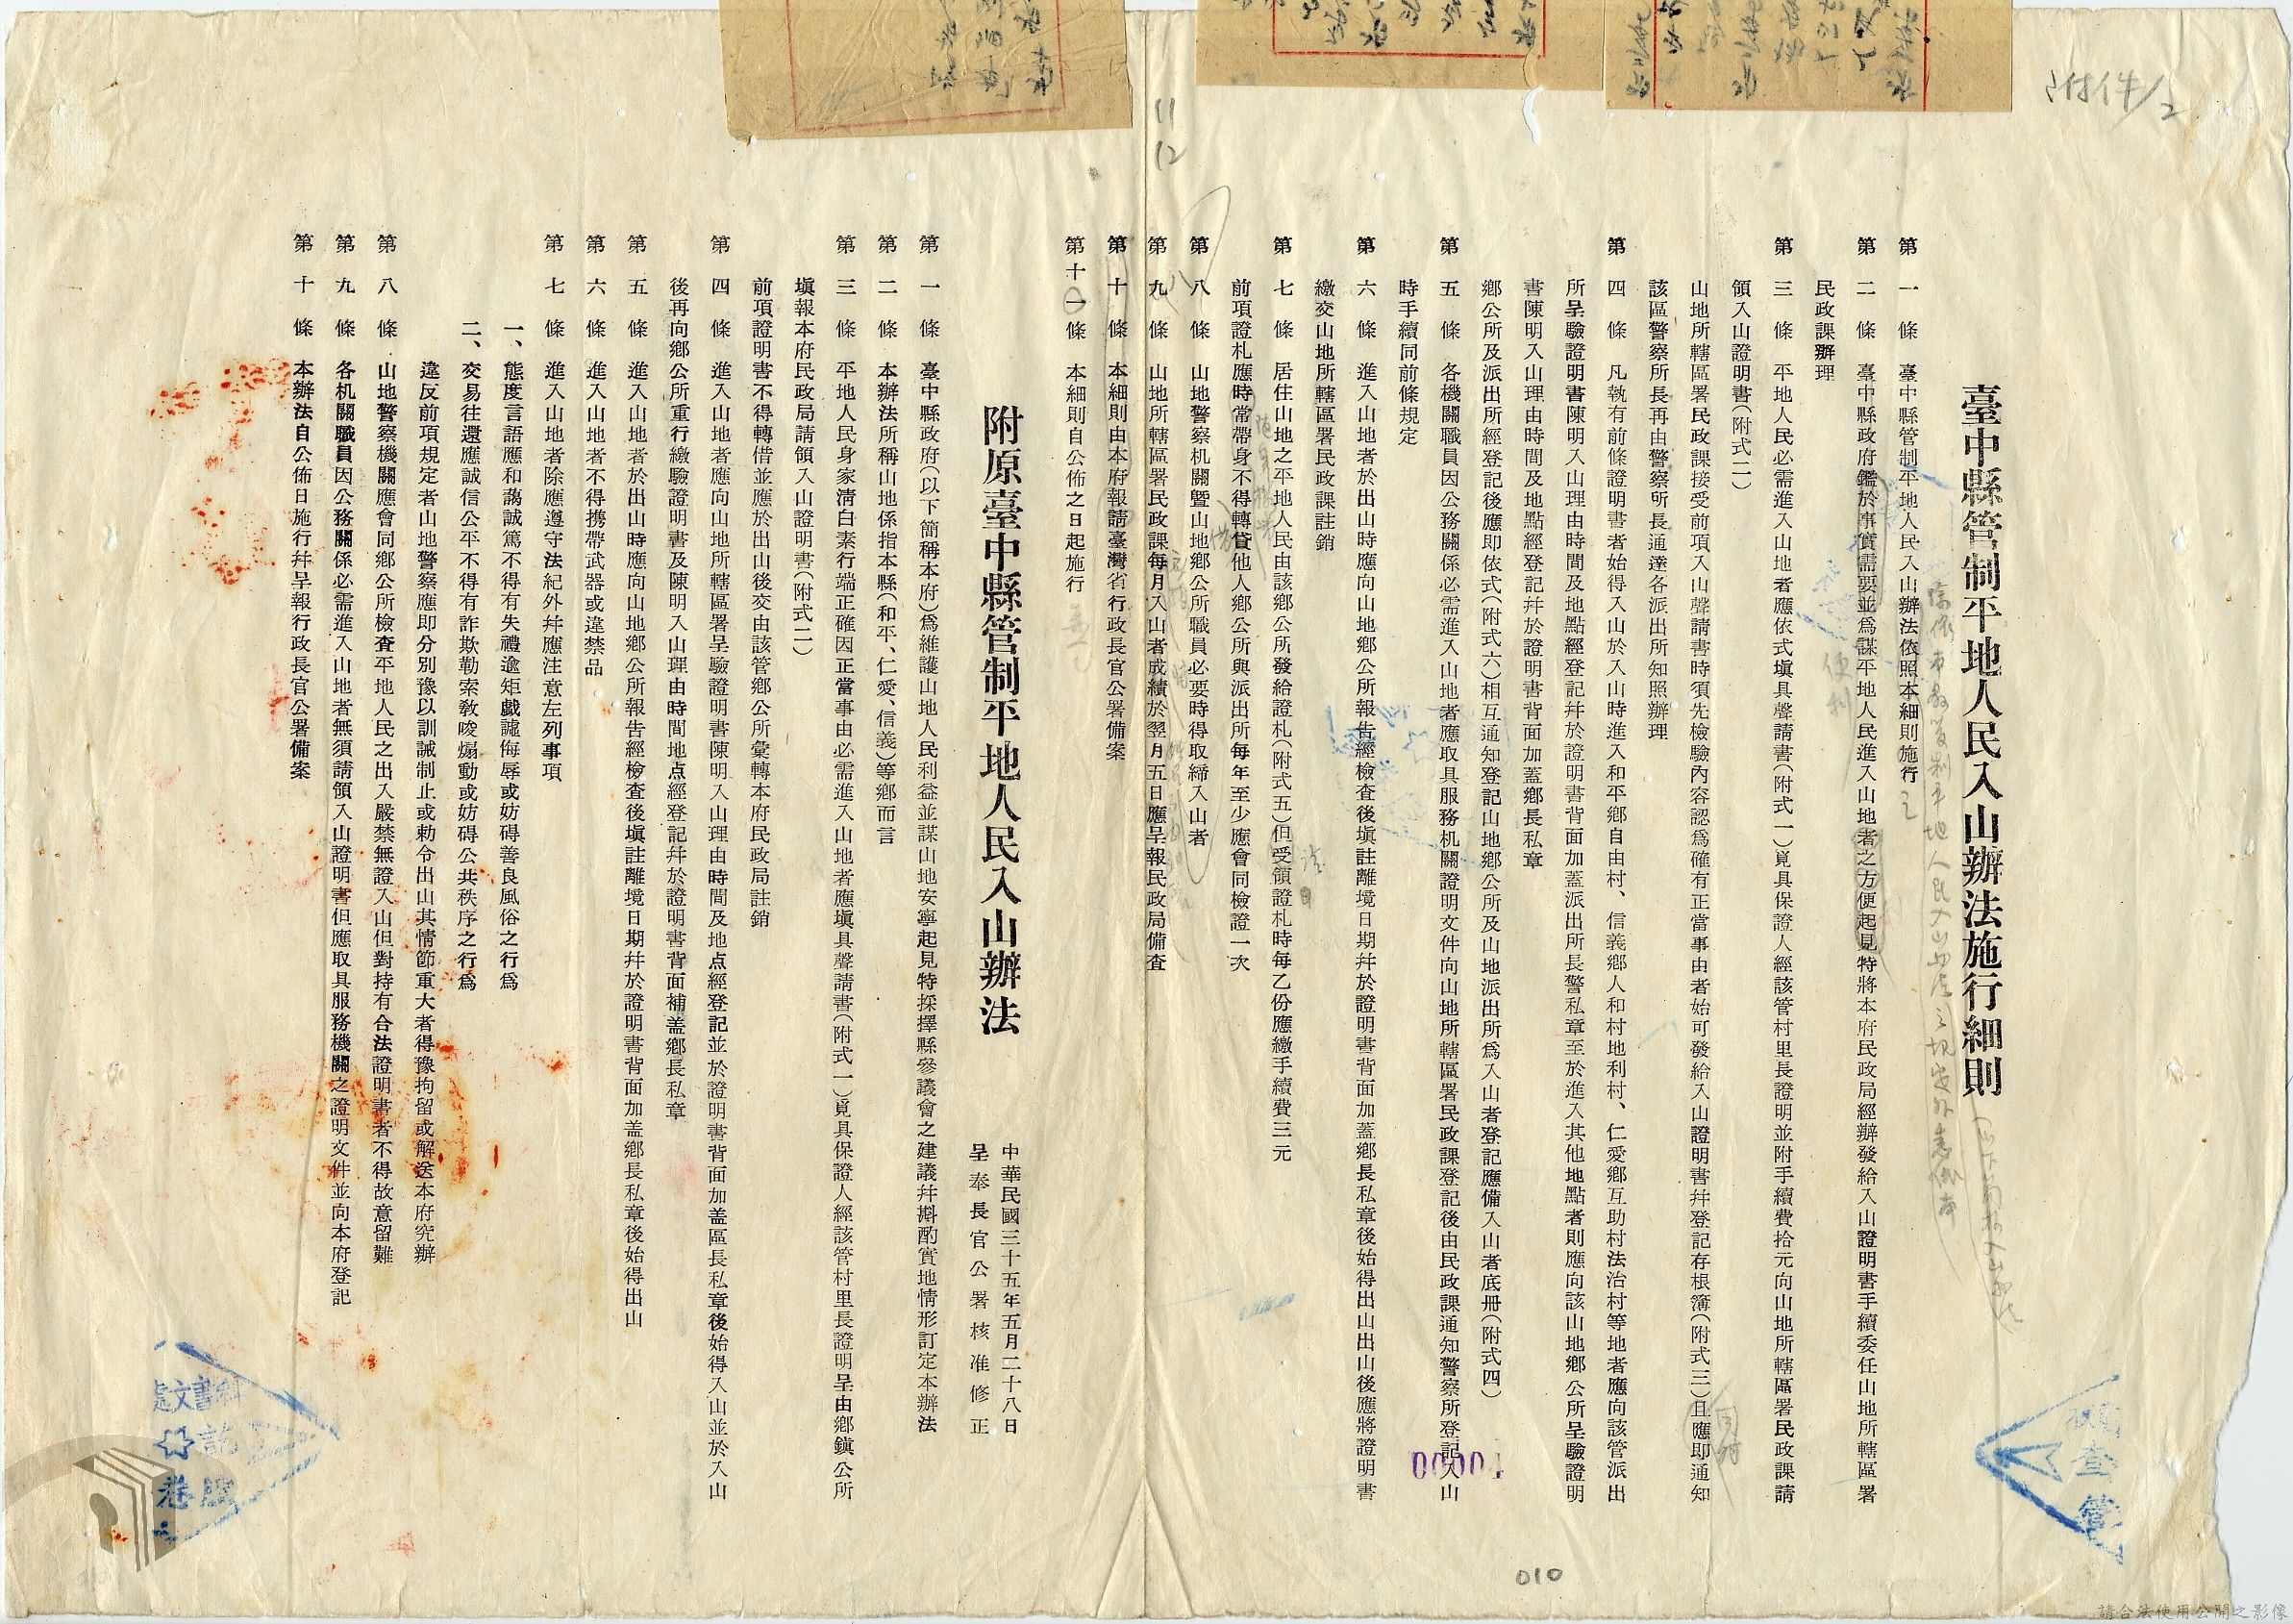 附件/2
臺中縣管制平地人民入山辦法施行細則
第一條 臺中縣管制平地人民入山辦法依照本細則施行之
第二條 臺中縣政府鑑於事實需要並爲謀平地人民進入山地者之方便起見特將本府民政局經辦發給入山證明書手續委任山地所轄區署
民政課辦理
第三條 平地人民必需進入山地者應依式塡具聲請書(附式一)覓具保證人經該管村里長證明並附手續費拾元向山地所轄區署民政課請
領入山證明書(附式二)
山地所轄區署民政課接受前項入山聲請書時須先檢驗內容認爲確有正當事由者始可發給入山證明書幷登記存根簿(附式三)且應即通知
該區警察所長再由警察所長通達各派出所知照辦理
第四條 凡執有前條證明書者始得入山於入山時進入和平鄉自由村、信義鄉人和村地利村、仁愛鄉互助村法治村等地者應向該管派出
所呈驗證明書陳明入山理由時間及地點經登記幷於證明書背面加蓋派出所長警私章至於進入其他地點者則應向該山地鄉公所呈驗證明
書陳明入山理由時間及地點經登記幷於證明書背面加蓋鄉長私章
鄉公所及派出所經登記後應即依式(附式六)相互通知登記山地鄉公所及山地派出所爲入山者登記應備入山者底冊(附式四)
第五條 各機關職員因公務關係必需進入山地者應取具服務机關證明文件向山地所轄區署民政課登記後由民政課通知警察所登記入山
時手續同前條規定
第六條 進入山地者於出山時應向山地鄉公所報告經檢查後塡註離境日期幷於證明書背面加蓋鄉長私章後始得出山出山後應將證明書
繳交山地所轄區署民政課註銷
第七條 居住山地之平地人民由該鄉公所發給證札(附式五)但受領證札時每乙份應繳手續費三元
前項證札應時常帶身不得轉貸他人鄉公所與派出所每年至少應會同檢證一次
第八條 山地警察机關暨山地鄉公所職員必要時得取締入山者
第九條 山地所轄區署民政課每月入山者成績於翌月五日應呈報民政局備查
第十條 本細則由本府報請臺灣省行政長官公署備案
第十一條 本細則自公佈之日起施行
11
12
附原臺中縣管制平地人民入山辦法
中華民國三十五年五月二十八日
呈奉長官公署核准修正
第一條 臺中縣政府(以下簡稱本府)爲維護山地人民利益並謀山地安寧起見特採擇縣參議會之建議幷斟酌實地情形訂定本辦法
第二條 本辦法所稱山地係指本縣(和平、仁愛、信義)等鄉而言
第三條 平地人民身家淸白素行端正確因正當事由必需進入山地者應塡具聲請書(附式一)覓具保證人經該管村里長證明呈由鄉鎭公所
塡報本府民政局請領入山證明書(附式二)
前項證明書不得轉借並應於出山後交由該管鄉公所彙轉本府民政局註銷
第四條 進入山地者應向山地所轄區署呈驗證明書陳明入山理由時間及地点經登記並於證明書背面加盖區長私章後始得入山並於入山
後再向鄉公所重行繳驗證明書及陳明入山理由時間地点經登記幷於證明書背面補盖鄉長私章
第五條 進入山地者於出山時應向山地鄉公所報告經檢查後塡註離境日期幷於證明書背面加盖鄉長私章後始得出山
第六條 進入山地者不得携帶武器或違禁品
第七條 進入山地者除應遵守法紀外幷應注意左列事項
一、態度言語應和藹誠篤不得有失禮逾矩戲謔侮辱或妨碍善良風俗之行爲
二、交易往還應誠信公平不得有詐欺勒索敎唆煽動或妨碍公共秩序之行爲
違反前項規定者山地警察應即分別豫以訓誡制止或勅令出山其情節重大者得豫拘留或解送本府究辦
第八條 山地警察機關應會同鄉公所檢查平地人民之出入嚴禁無證入山但對持有合法證明書者不得故意留難
第九條 各机關職員因公務關係必需進入山地者無須請領入山證明書但應取具服務機關之證明文件並向本府登記
第十條 本辦法自公佈日施行幷呈報行政長官公署備案
00004
010
請合法使用公開之影像